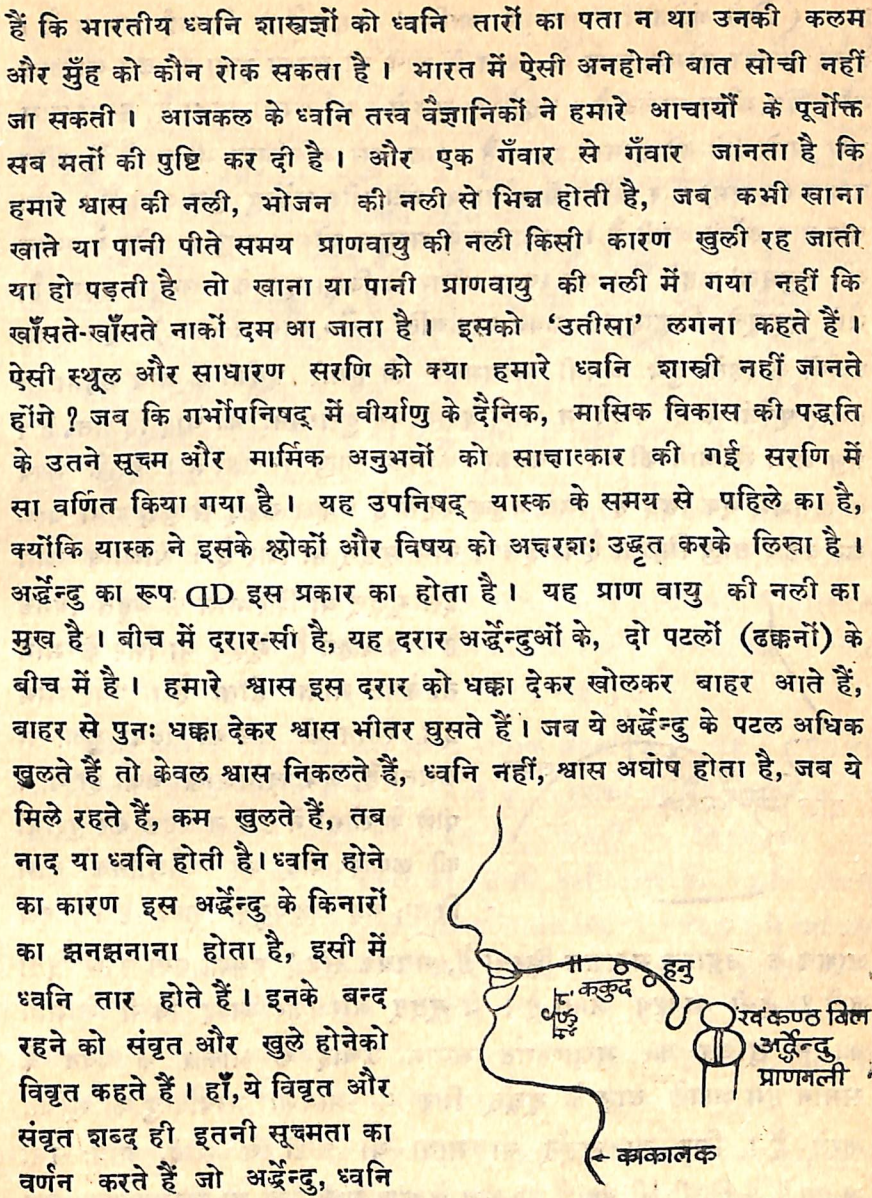 हैं कि भारतीय ध्वनि शास्त्रज्ञों को ध्वनि तारों का पता न था उनकी कलम
और मुँह को कौन रोक सकता है । भारत में ऐसी अनहोनी बात सोची नहीं
जा सकती । आजकल के ध्वनि तत्त्व वैज्ञानिकों ने हमारे आचार्यों के पूर्वोक्त
सब मतों की पुष्टि कर दी है । और एक गँवार से गँवार जानता है कि
हमारे श्वास की नली, भोजन की नली से भिन्न होती है, जब कभी खाना
खाते या पानी पीते समय प्राणवायु की नली किसी कारण खुली रह जाती
या हो पड़ती है तो खाना या पानी प्राणवायु की नली में गया नहीं कि
खाँसते-खाँसते नाकों दम आ जाता है । इसको ‘उतीसा’ लगना कहते हैं ।
ऐसी स्थूल और साधारण सरणि को क्या हमारे ध्वनि शास्त्री नहीं जानते
होंगे ? जब कि गर्भोपनिषद् में वीर्याणु के दैनिक, मासिक विकास की पद्धति
के उतने सूक्ष्म और मार्मिक अनुभवों को साक्षात्कार की गई सरणि में
सा वर्णित किया गया है । यह उपनिषद् यास्क के समय से पहिले का है,
क्योंकि यास्क ने इसके श्लोकों और विषय को अक्षरशः उद्धृत करके लिखा है ।
अर्द्धेन्दु का रूप ᗡD इस प्रकार का होता है । यह प्राण वायु की नली का
मुख है । बीच में दरार-सी है, यह दरार अर्द्धेन्दुओं के, दो पटलों (ढक्कनों) के
बीच में है । हमारे श्वास इस दरार को धक्का देकर खोलकर बाहर आते हैं,
बाहर से पुनः धक्का देकर श्वास भीतर घुसते हैं । जब ये अर्द्धेन्दु के पटल अधिक
खुलते हैं तो केवल श्वास निकलते हैं, ध्वनि नहीं, श्वास अघोष होता है, जब ये
मिले रहते हैं, कम खुलते हैं, तब
नाद या ध्वनि होती है। ध्वनि होने
का कारण इस अर्द्धेन्दु के किनारों
का झनझनाना होता है, इसी में
ध्वनि तार होते हैं । इनके बन्द
रहने को संवृत और खुले होनेको
विवृत कहते हैं । हाँ, ये विवृत और
संवृत शब्द ही इतनी सूक्ष्मता का
वर्णन करते हैं जो अर्द्धेन्दु, ध्वनि
हनु
ककुद
कण्ठ बिल
अर्द्धेन्दु
प्राणनली
काकालक